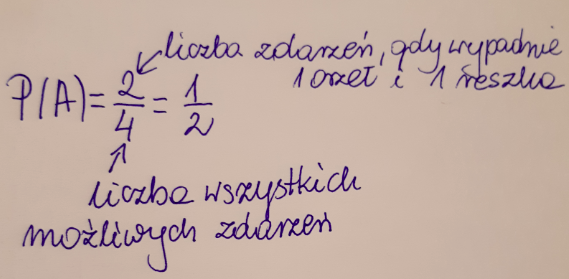 liczba zdarzeń, gdy wypadnie
1 orzeł i 1 reszka
P(A) = 2/4 = 1/2
liczba wszystkich
możliwych zdarzeń